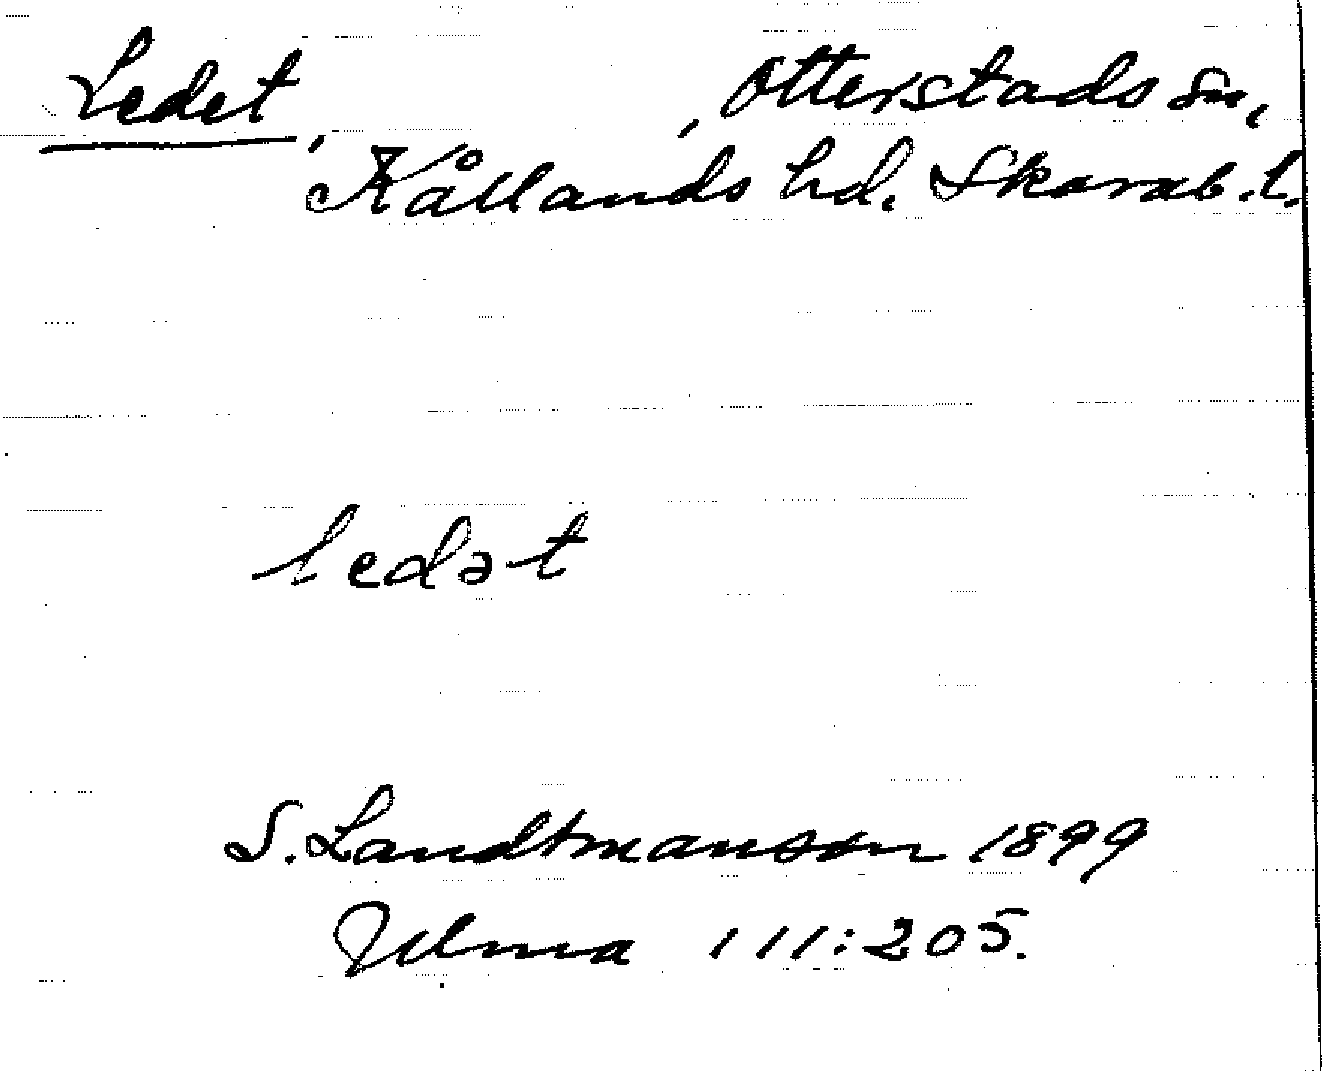 Ledet, , Otterstads sn,
Kållands hd. Skarab.l.
ledət
S. Landtmanson 1899
Ulma 111:205.